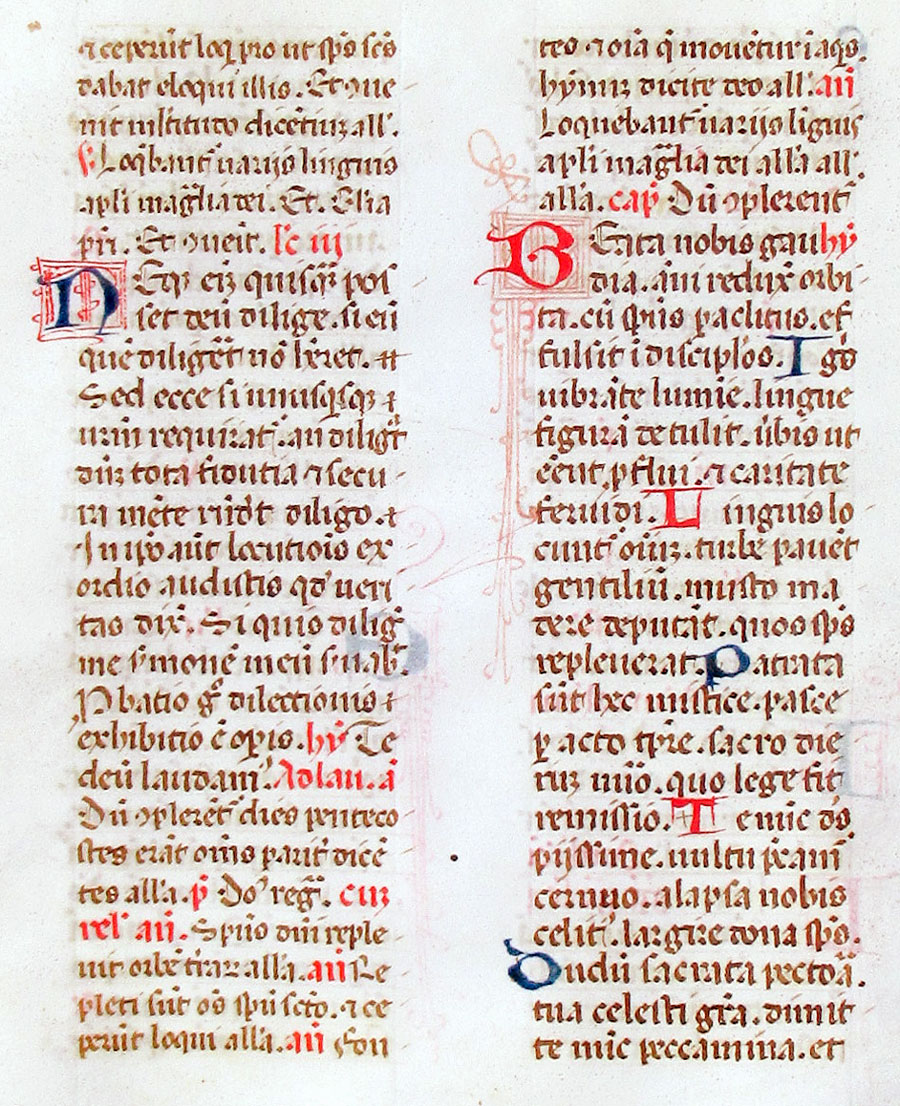 ⁊ ceperūt loq̄ pro ut sp̄s sc̄s
dabat eloqui illis. Et ɔue
nit ml̄titudo dicētur all'.
℟ Loq̄bant̄ uarijs linguis
apl̄i maḡlia dei. Et. Gl̄ia
pr̄i. Et ɔueīt. l'c iij
NEqꝫ eīꝫ quisq̄ꝫ pos
set deū dilige. si eū
quē diligēt nō
Sed ecce si unusq̄sqꝫ
ur̄m requirat̄. an diliḡt
dn̄ꝫ tota fidutia ⁊ secu
ra mēte r̄ndēt diligo. ⁊
In ip̄o aūt locutiōis ex
ordio audistis qd' ueri
tas dix̄. Si quis diliḡ
me s'monē meū s'uab̄.
P̄batio g̊ dilectionis ⁊
exhibitio ē op̄is. hȳ Te
deū laudam̄. Ad lau. ā
Dū ɔpleret̄ dies penteco
stes erāt om̄s parit̄ dicē
tes all'a. p̄ Dō's reḡ. cuꝫ
rel' añ. Sp̄us dn̄i reple
uit orbē t̄raꝝ all'a. añ Re
pleti sūt om̄s sp̄u sctō. ⁊ ce
perūt loqui all'a. añ Fon
tes ⁊ oīa q̄ mouētur ī aq̄s.
hȳmuꝫ dicite deo all'. añ
Loquebant̄ uarijs līguis
apl̄i maḡlia dei all'a all'.
all'a. cap̄ Dū ɔplerent̄
BEata nobis gau hȳ
dia. āni redux̄ orbi
ta. cū sp̄us paclitus. ef
fulsit ī discip̄los. Igō
uibrāte lumīe. lingue
figurā detulit. ūbis ut
ēēnt p̄flui. ⁊ caritate
feruidi. Linguis lo
cunt̄ oīuꝫ. turbe pauēt
gentiliū. musto ma
dere deputāt. quos sp̄s
repleuerat. Patrata
sūt hec mistice. pasce
ꝑacto tp̄re. sacro die
ruꝫ nūo. quo lege fit
remissio. Te nūc ds̄
pijssime. uultu p̄cam̄
cernuo. alapsa nobis
celit̄. largire dona sp̄s.
Dudū sacrata pectoā
tua celesti gr̄a. dimit
te nūc peccamina. et